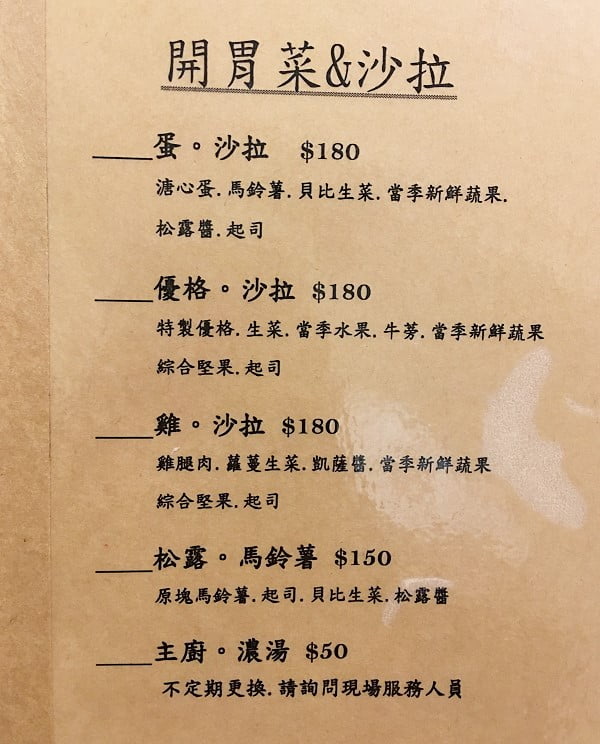 開胃菜&沙拉
____蛋。沙拉 $180
溏心蛋.馬鈴薯.貝比生菜.當季新鮮蔬果.
松露醬.起司
____優格。沙拉 $180
特製優格.生菜.當季水果.牛蒡.當季新鮮蔬果
綜合堅果.起司
____雞。沙拉 $180
雞腿肉.蘿蔓生菜.凱薩醬.當季新鮮蔬果
綜合堅果.起司
____松露。馬鈴薯 $150
原塊馬鈴薯.起司.貝比生菜.松露醬
____主廚。濃湯 $50
不定期更換.請詢問現場服務人員